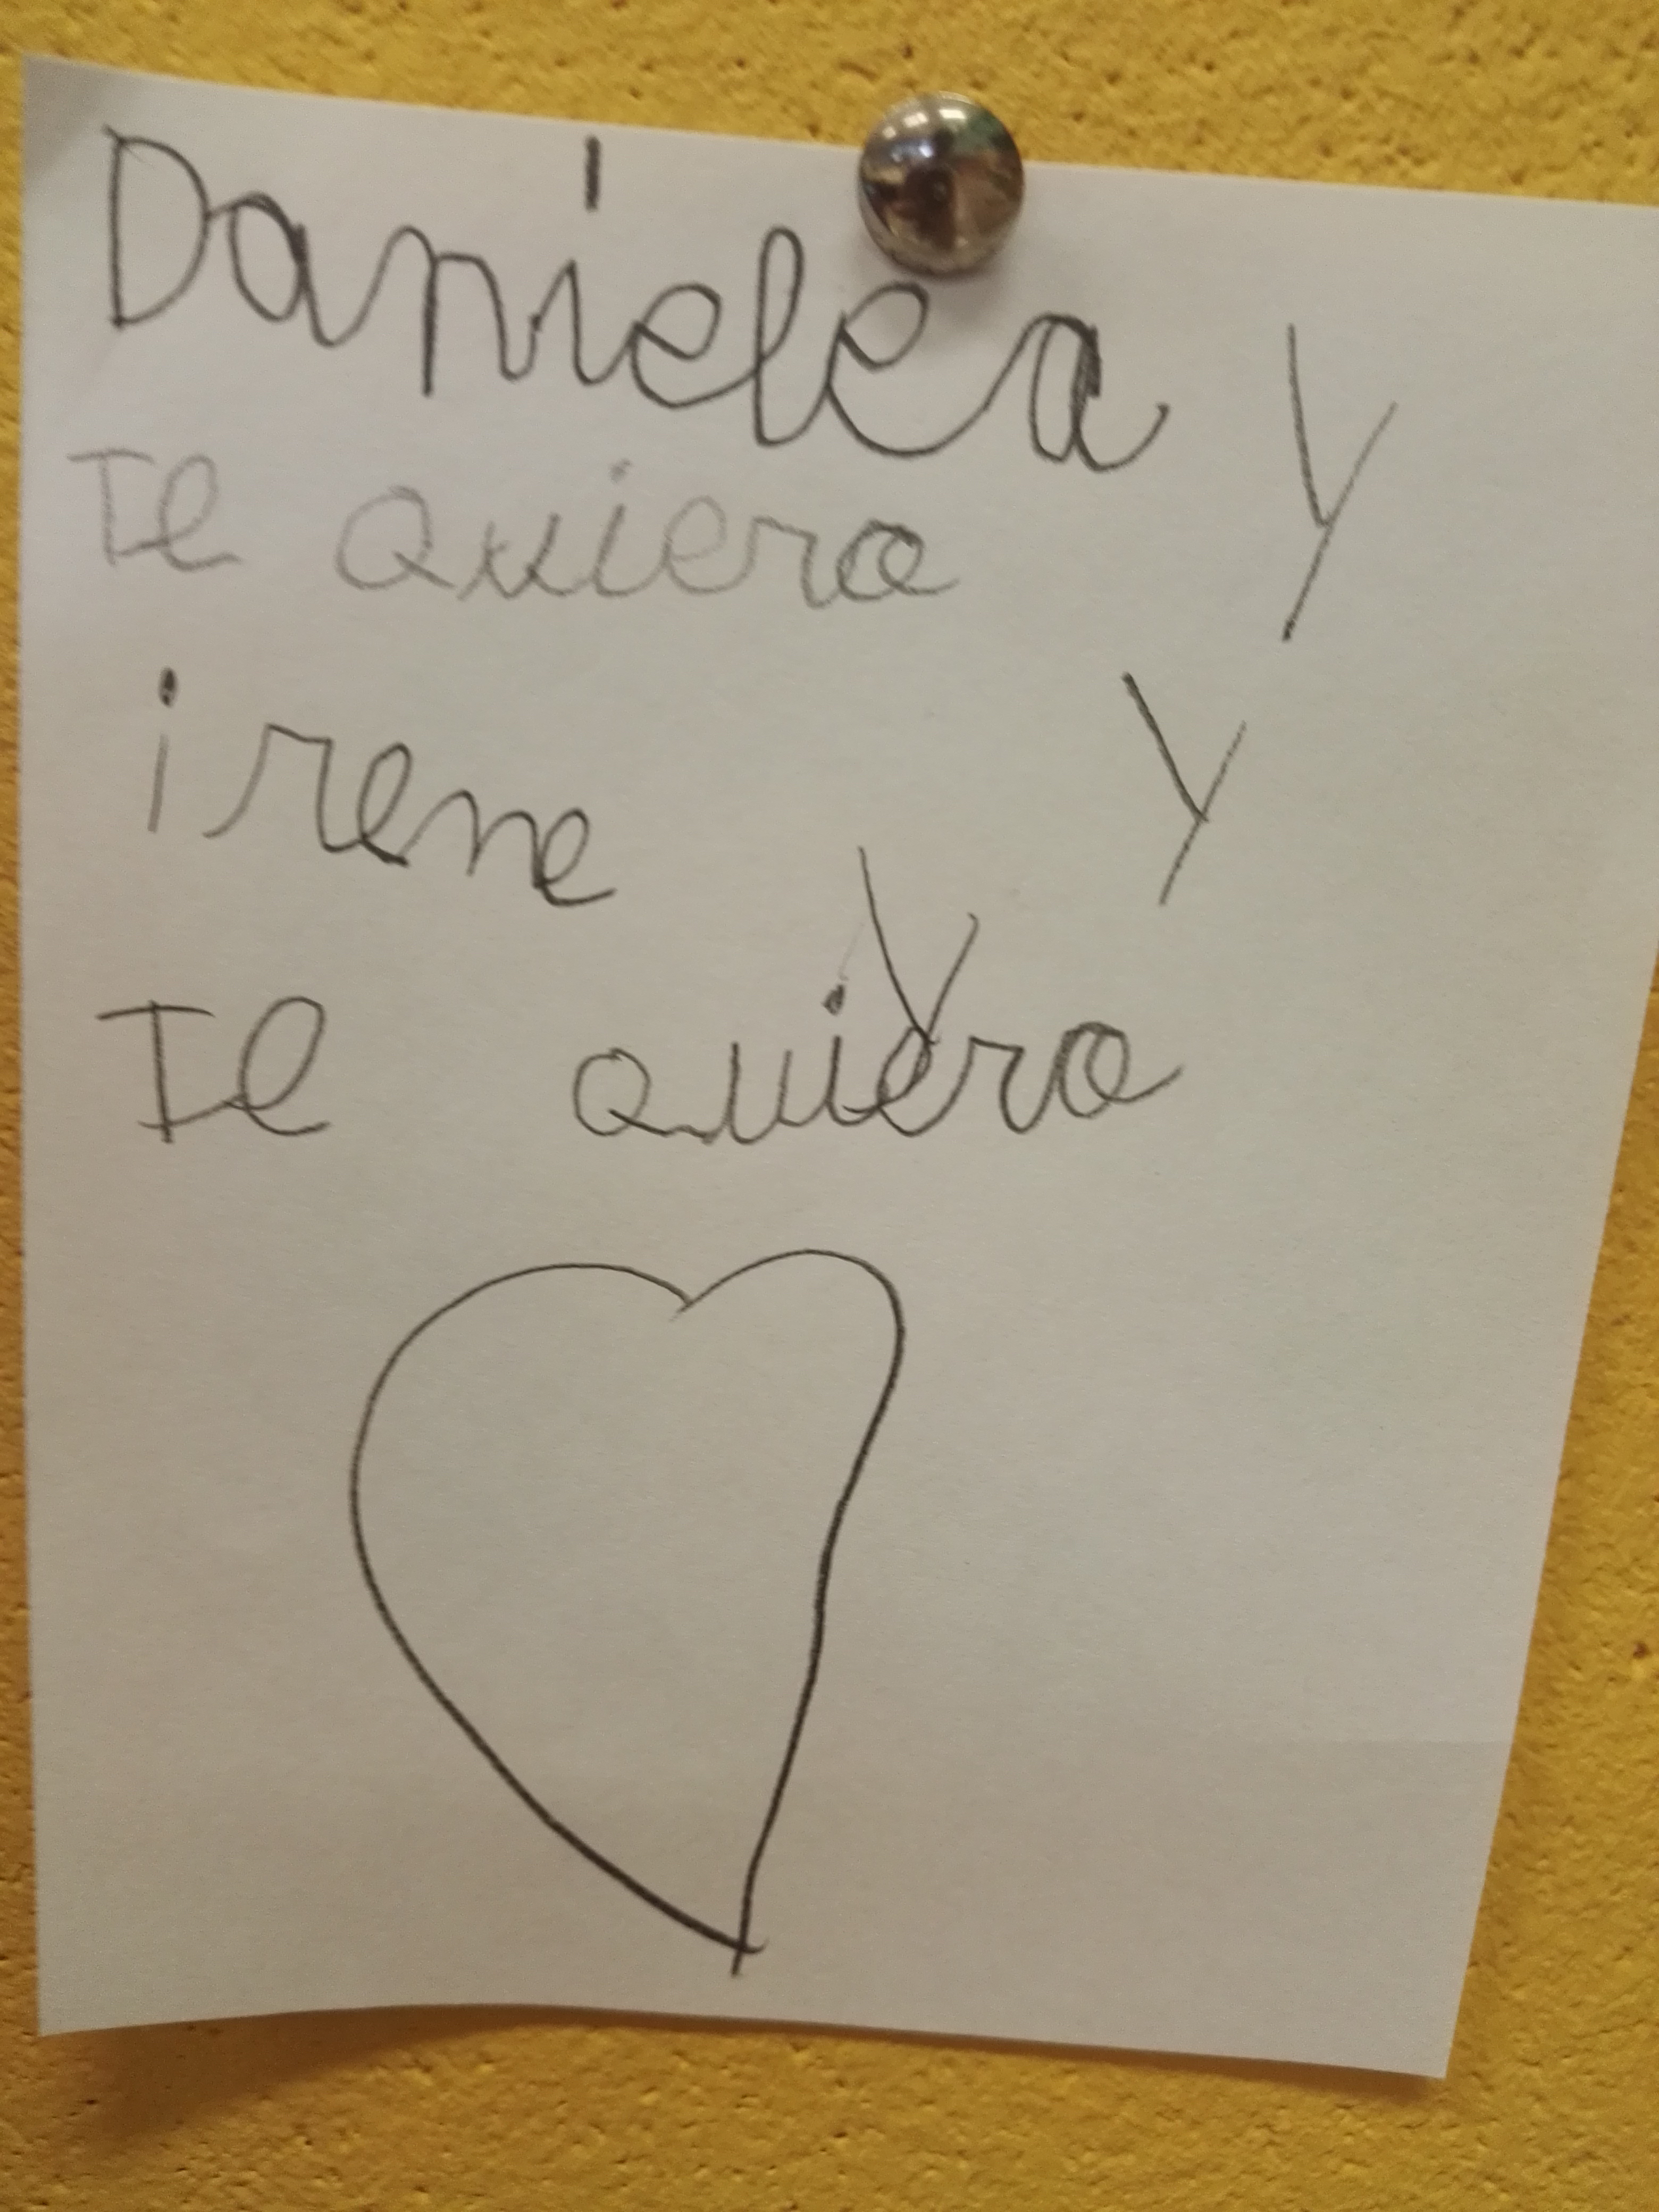 Danielea y
Te quiero
y
irene
y
Te quiero